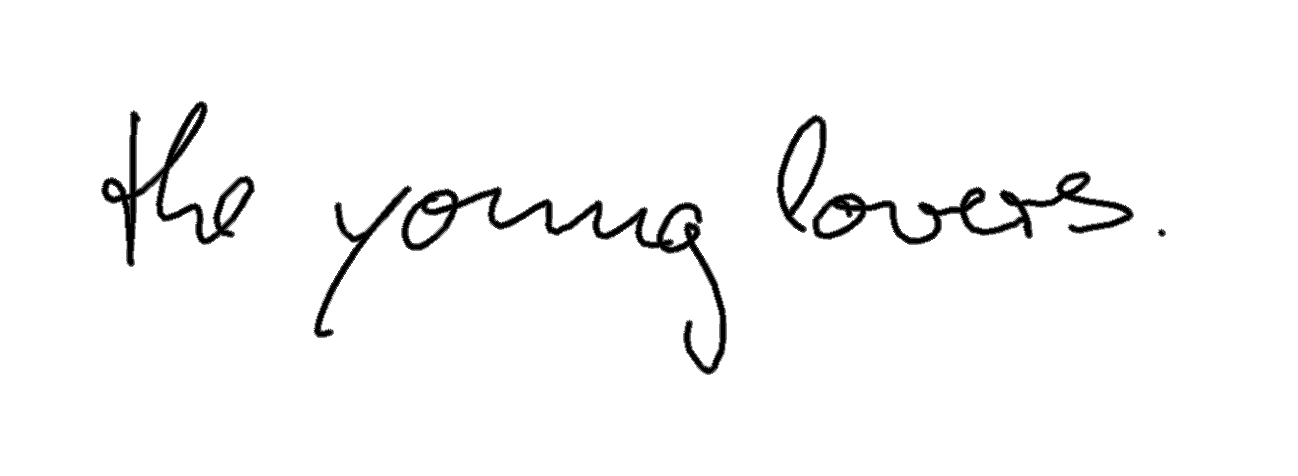 the young lovers.